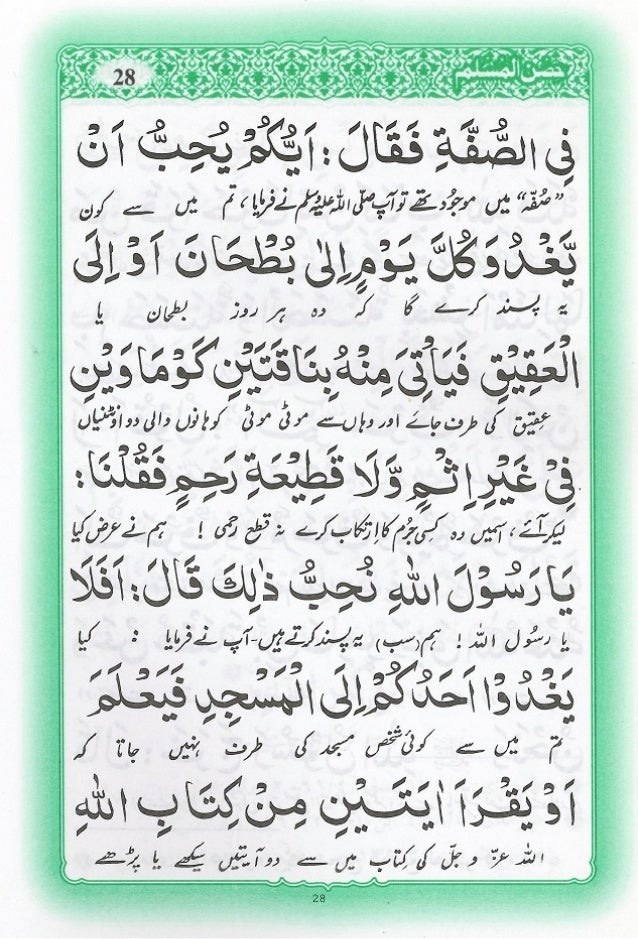 28 حصن المسلم
فِی الصُّفَّةِ فَقَالَ: اَیُّکُمْ یُحِبُّ اَنْ
”صُفّہ“ میں موجُود تھے تو آپ صلی اللہ علیہ وسلم نے فرمایا، تم میں سے کون
یَّغْدُوَ کُلَّ یَوْمٍ اِلٰی بُطْحَانَ اَوْ اِلَی
یہ پسند کرے گا کہ وہ ہر روز بطحان یا
الْعَقِیْقِ فَیَاْتِیَ مِنْهُ بِنَاقَتَیْنِ کَوْمَاوَیْنِ
عقیق کی طرف جائے اور وہاں سے موٹی موٹی کوہانوں والی دو اونٹنیاں
فِیْ غَیْرِ اِثْمٍ وَّلَا قَطِیْعَةِ رَحِمٍ فَقُلْنَا:
لیکر آئے، اسمیں وہ کسی جُرم کا ارتکاب کرے نہ قطع رحمی ! ہم نے عرض کیا
یَا رَسُوْلَ اللهِ نُحِبُّ ذٰلِكَ قَالَ: اَفَلَا
یا رسُول اللہ ! ہم (سب) یہ پسند کرتے ہیں۔ آپ نے فرمایا : کیا
یَغْدُوْا اَحَدُکُمْ اِلَی الْمَسْجِدِ فَیَعْلَمَ
تم میں سے کوئی شخص مسجد کی طرف نہیں جاتا کہ
اَوْ یَقْرَاَ اٰیَتَیْنِ مِنْ کِتَابِ اللهِ
اللہ عزّ و جلّ کی کِتاب میں سے دو آیتیں سیکھے یا پڑھے
28